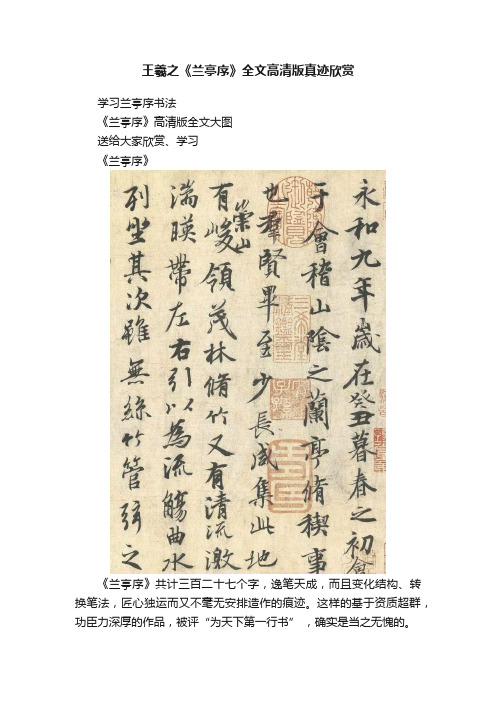 王羲之《兰亭序》全文高清版真迹欣赏
学习兰亭序书法
《兰亭序》高清版全文大图
送给大家欣赏、学习
《兰亭序》
永和九年歲在癸丑暮春之初會
于會稽山陰之蘭亭脩稧事
也羣賢畢至少長咸集此地
有崇山峻領茂林脩竹又有清流激
湍暎帶左右引以為流觴曲水
列坐其次雖無絲竹管弦之
《兰亭序》共计三百二十七个字，逸笔天成，而且变化结构、转
换笔法，匠心独运而又不毫无安排造作的痕迹。这样的基于资质超群，
功臣力深厚的作品，被评“为天下第一行书” ，确实是当之无愧的。